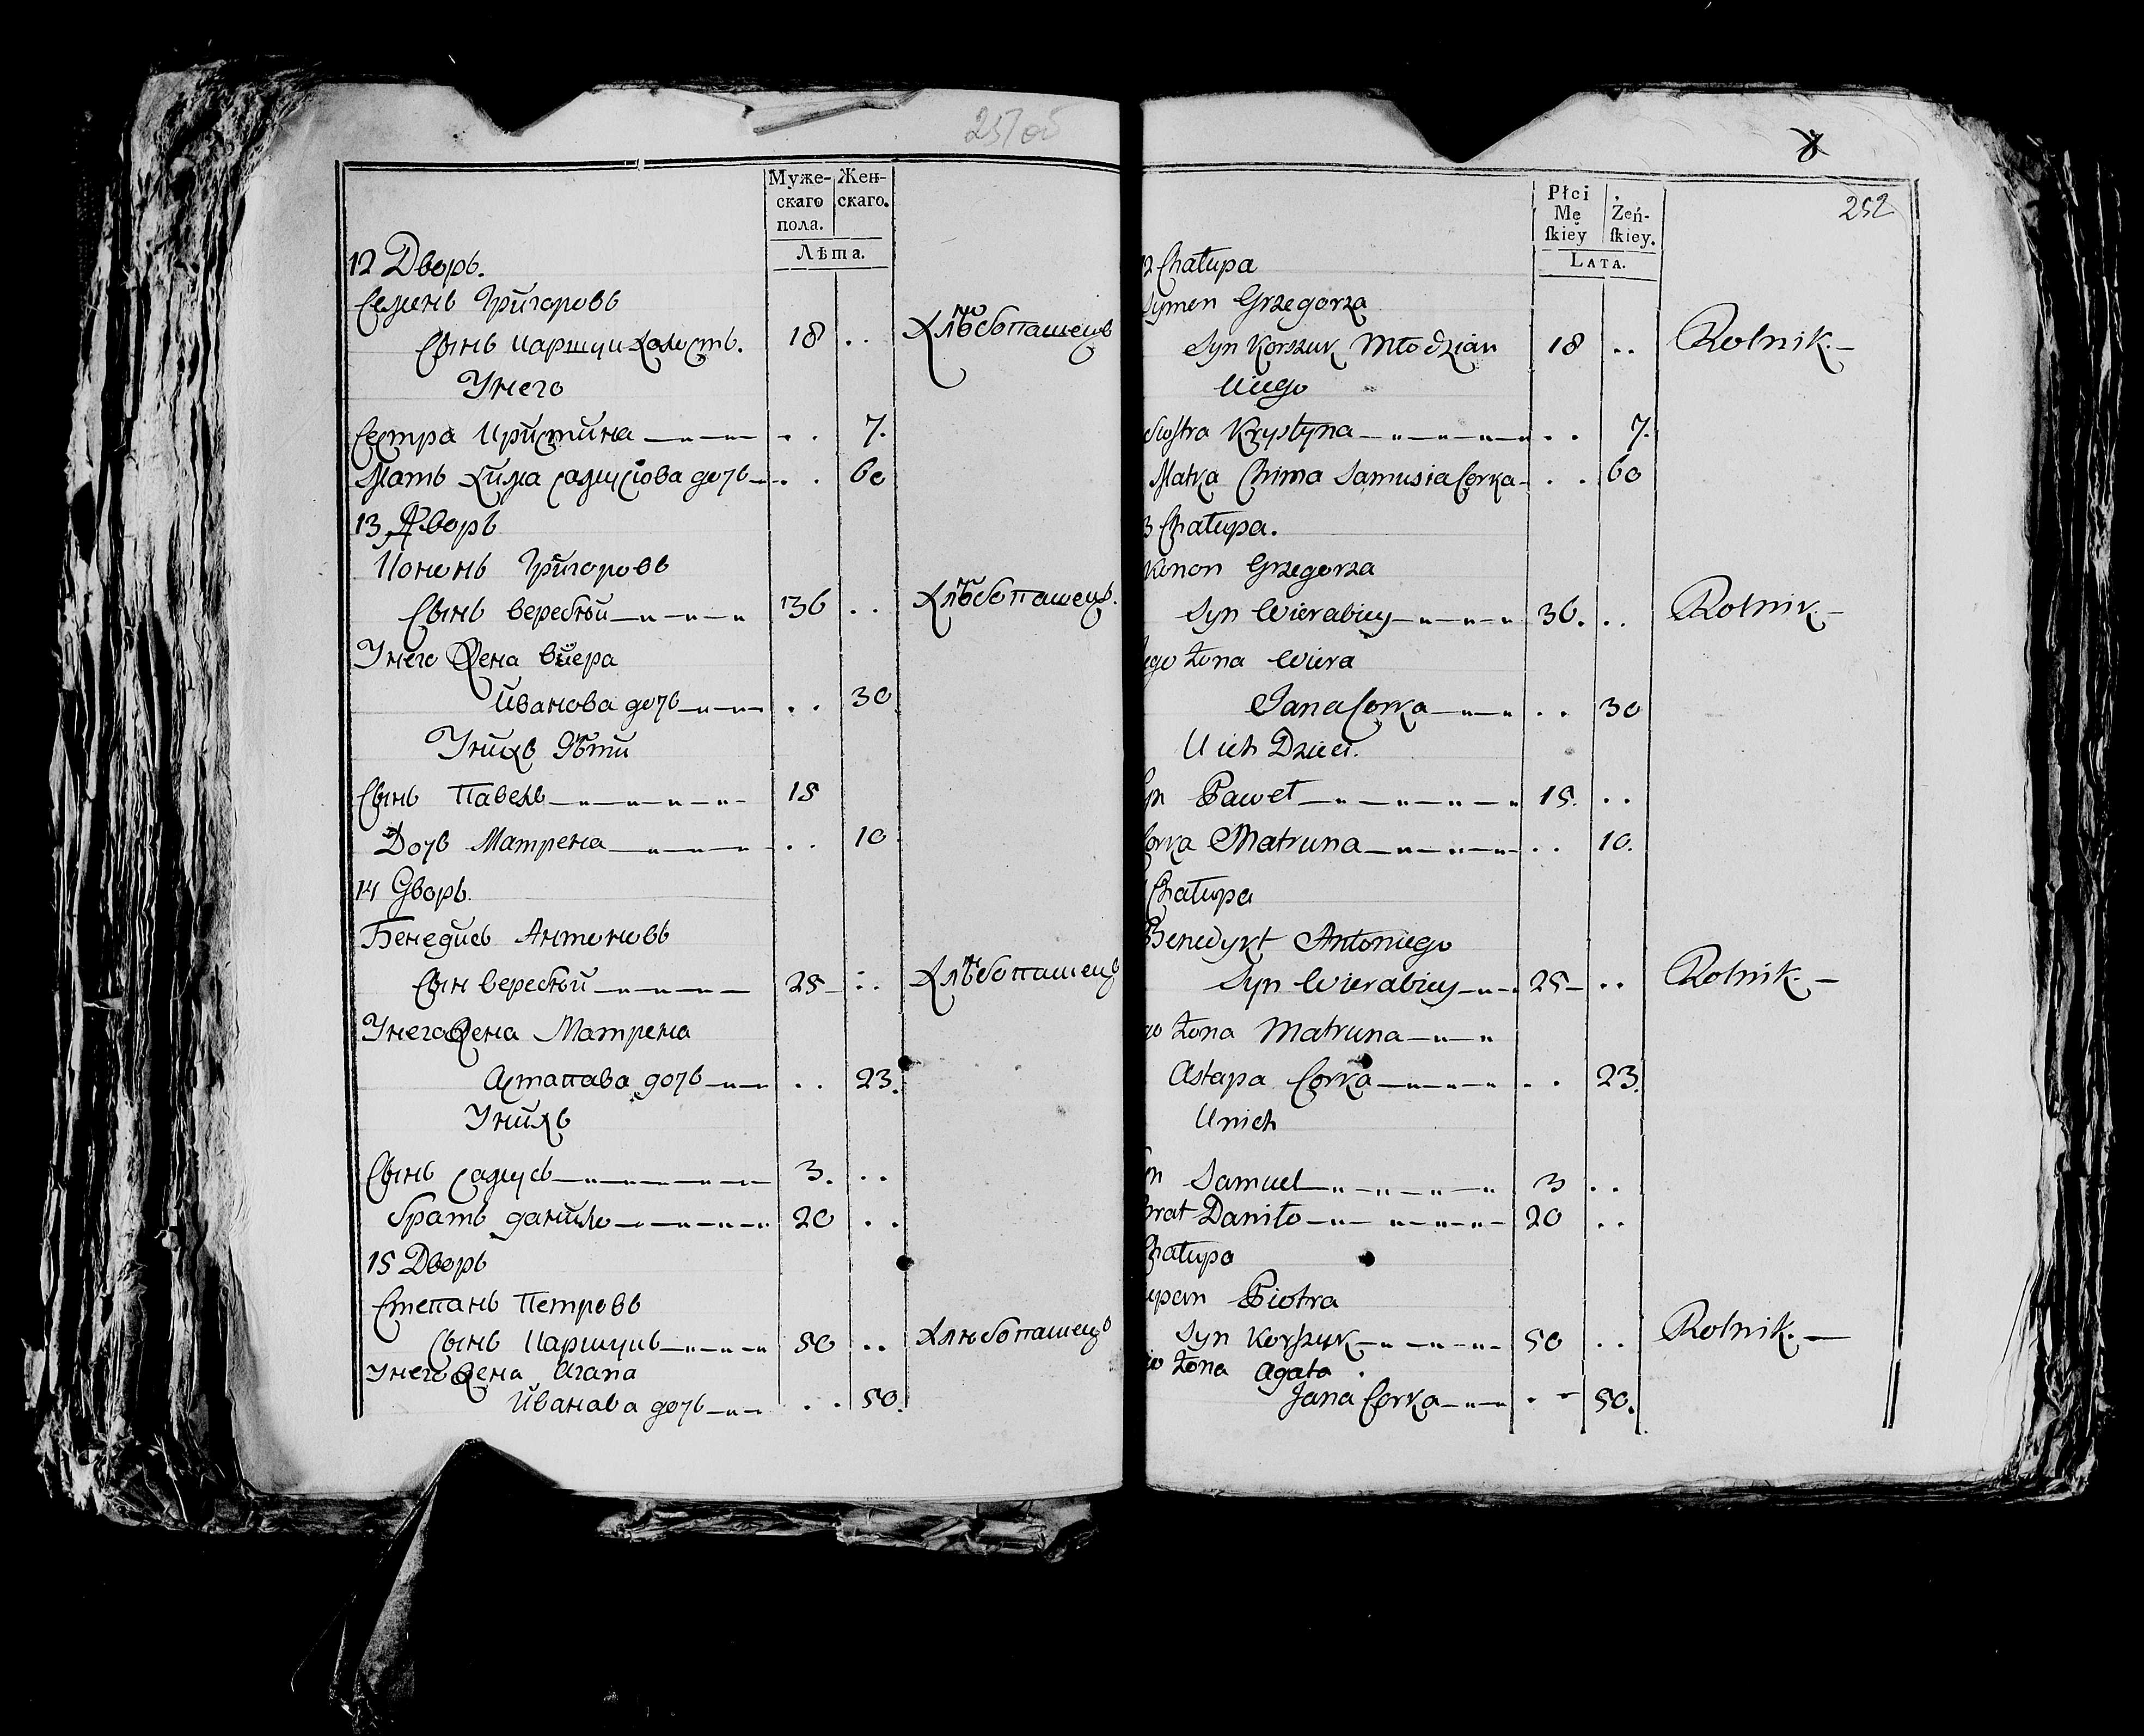 251 об
Муже-
скаго
пола.
Жен-
скаго.
Лѣта.
12 Дворъ.
Семенъ Григоровъ
Сынъ Каршук Холость. 18 .. Хлѣбопашецъ
Унего
Сестра Кристина .. 7.
Мать Хима Самусіова дочъ .. 60
13 Дворъ
Кононъ Григоровъ
Сынъ Веребъй 36 .. Хлѣбопашецъ.
Унего Жена Вѣера
Иванова дочъ .. 30
Унихъ Дѣти
Сынъ Павелъ 15
Дочъ Матрена .. 10
14 Дворъ
Бенедикъ Антоновъ
Сын Веребъй 25 .. Хлѣбопашецъ
Унего Жена Матрена
Астапава дочъ .. 23.
Унихъ
Сынъ Самусь 3. ..
Братъ Данило 20 ..
15 Дворъ
Степанъ Петровъ
Сынъ Каршукъ 50 .. Хлѣбопашецъ
Унего Жена Агапа
Иванава дочъ .. 50.
8
252
Płci
Mę
ſkiey
Żeń-
ſkiey.
Lata.
2 Chałupa
Symen Grzegorza
Syn Korszuk Młodzian 18 .. Rolnik.
Uniego
Siostra Krystyna .. 7.
Matka Chima Samusia Corka .. 60
3 Chałupa.
Konon Grzegorza
Syn Wierabiey 36. .. Rolnik
ego Żona Wiera
Jana Corka .. 30
U ich Dzieci.
yn Paweł 15. ..
Corka Matruna .. 10.
Chałupa
Benedykt Antoniego
Syn Wierabiey 25 .. Rolnik.
go Żona Matruna
Astapa Corka .. 23.
Unich
yn Samuel 3 ..
Brat Daniło 20 ..
Chałupa
epan Piotra
Syn Korszuk 50 .. Rolnik.
go Żona Agata
Jana Corka .. 50.